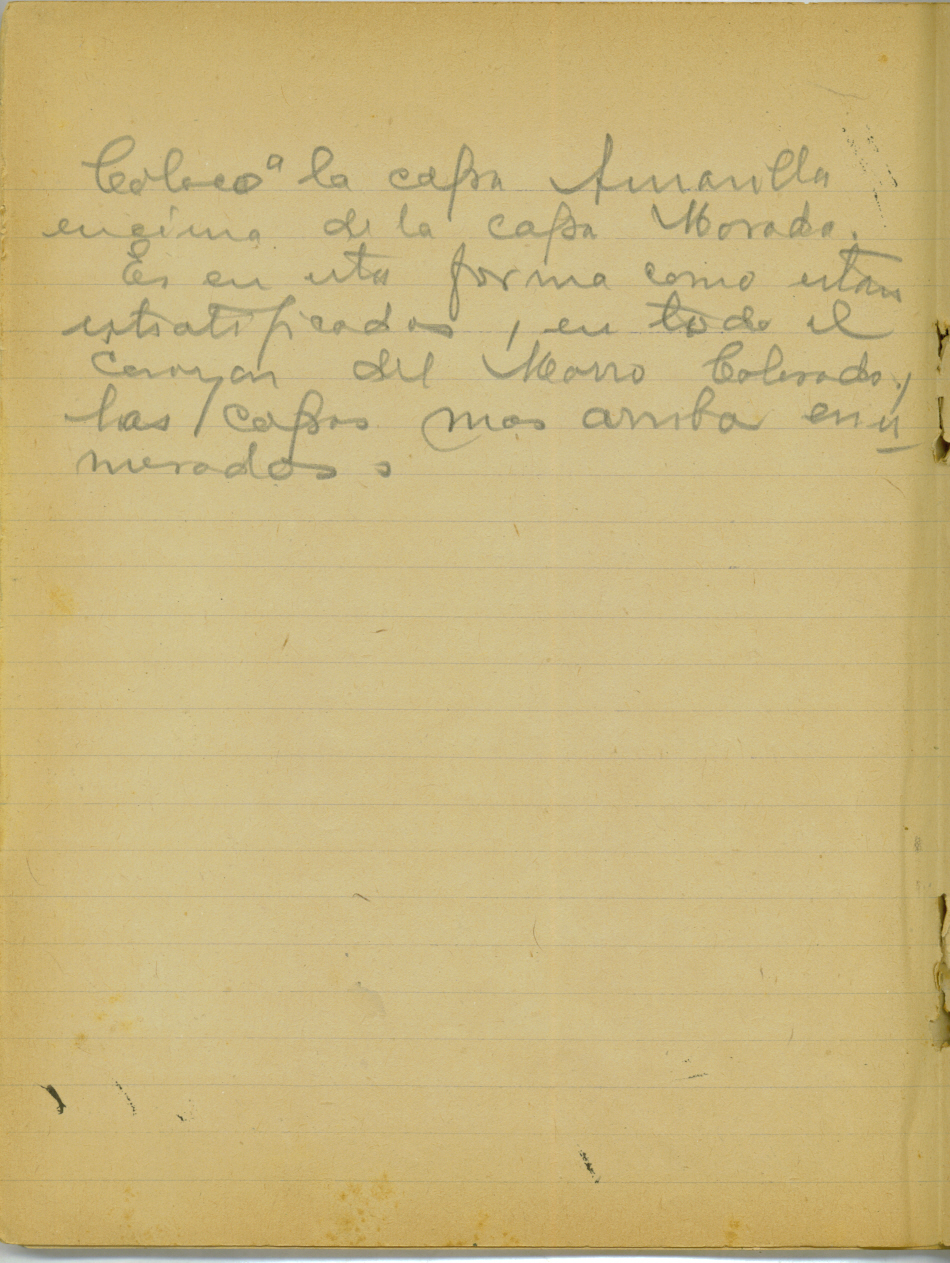 Coloco a la capa Amarilla
encima de la capa Morada.
Es en esta forma como estan
estratificados, en todo el
Corazon del Morro Colorado,
las capas mas arriba enu
merados.